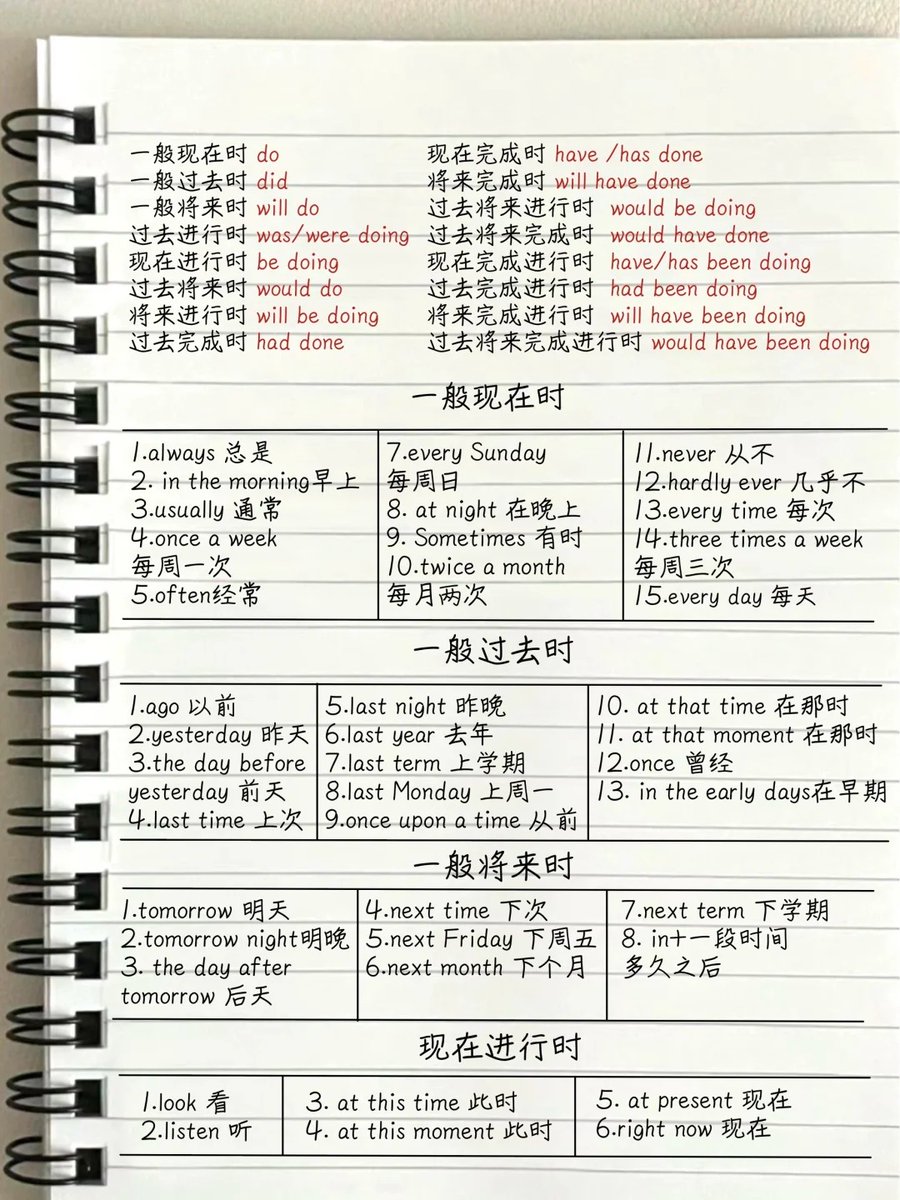 一般现在时 do
一般过去时 did
一般将来时 will do
过去进行时 was/were doing
现在进行时 be doing
过去将来时 would do
将来进行时 will be doing
过去完成时 had done
现在完成时 have /has done
将来完成时 will have done
过去将来进行时 would be doing
过去将来完成时 would have done
现在完成进行时 have/has been doing
过去完成进行时 had been doing
将来完成进行时 will have been doing
过去将来完成进行时 would have been doing
一般现在时
1.always 总是
2. in the morning早上
3.usually 通常
4.once a week
每周一次
5.often经常
7.every Sunday
每周日
8. at night 在晚上
9. Sometimes 有时
10.twice a month
每月两次
11.never 从不
12.hardly ever 几乎不
13.every time 每次
14.three times a week
每周三次
15.every day 每天
一般过去时
1.ago 以前
2.yesterday 昨天
3.the day before
yesterday 前天
4.last time 上次
5.last night 昨晚
6.last year 去年
7.last term 上学期
8.last Monday 上周一
9.once upon a time 从前
10. at that time 在那时
11. at that moment 在那时
12.once 曾经
13. in the early days在早期
一般将来时
1.tomorrow 明天
2.tomorrow night明晚
3. the day after
tomorrow 后天
4.next time 下次
5.next Friday 下周五
6.next month 下个月
7.next term 下学期
8. in+一段时间
多久之后
现在进行时
1.look 看
2.listen 听
3. at this time 此时
4. at this moment 此时
5. at present 现在
6.right now 现在